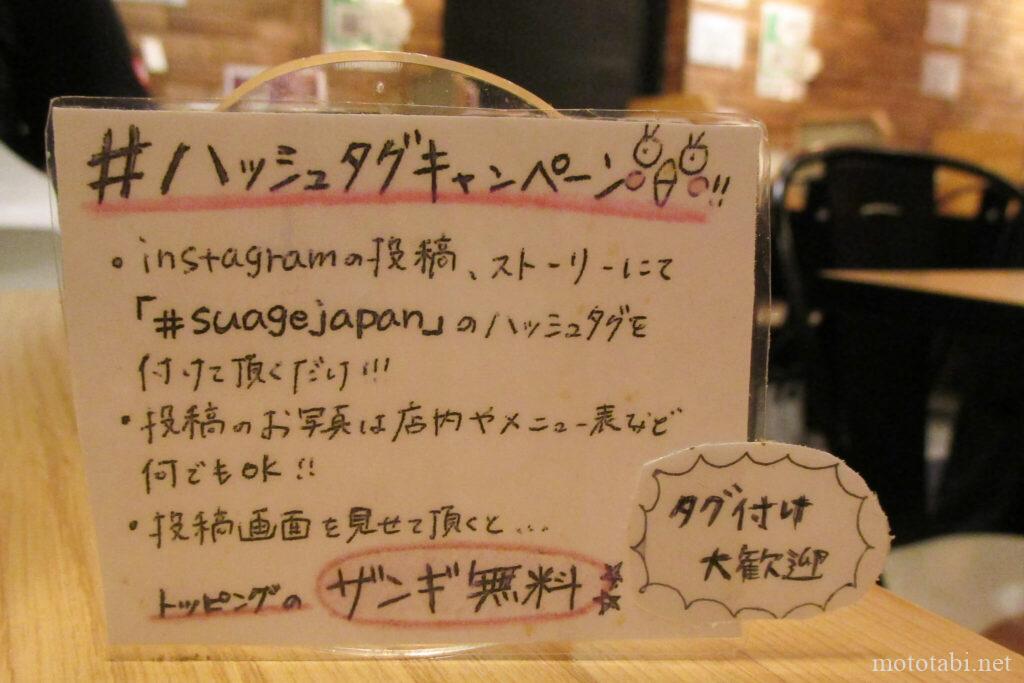 #ハッシュタグキャンペーン!!
・instagramの投稿、ストーリーにて
「#suagejapan」のハッシュタグを
付けて頂くだけ!!!
・投稿のお写真は店内やメニュー表など
何でもOK!!
・投稿画面を見せて頂くと...
トッピングの ザンギ無料
タグ付け
大歓迎
mototabi.net